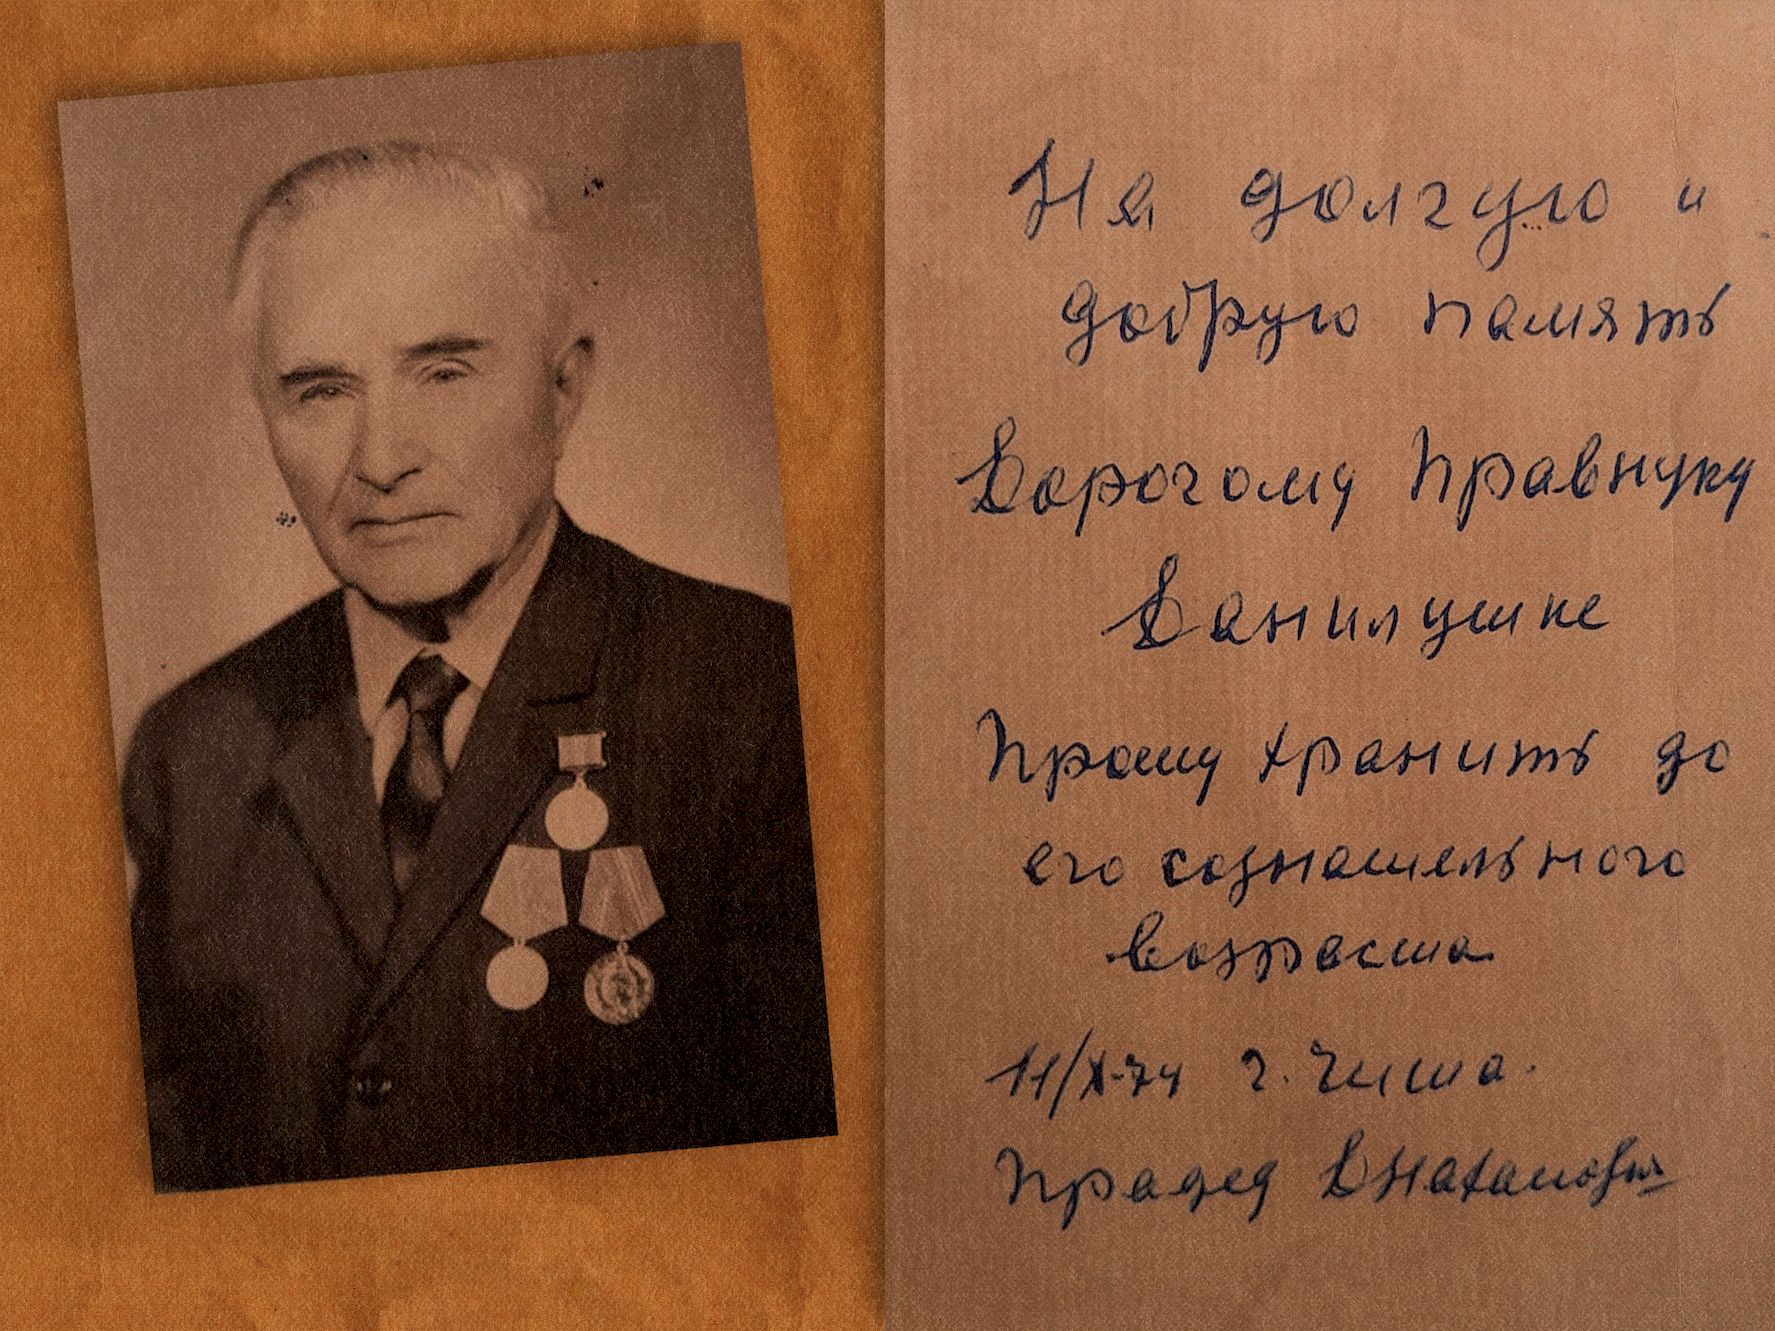 На долгую и
добрую память
Дорогому правнуку
Данилушке
Прошу хранить до
его сознательного
возраста
11/X-74 г. Чита.
Прадед